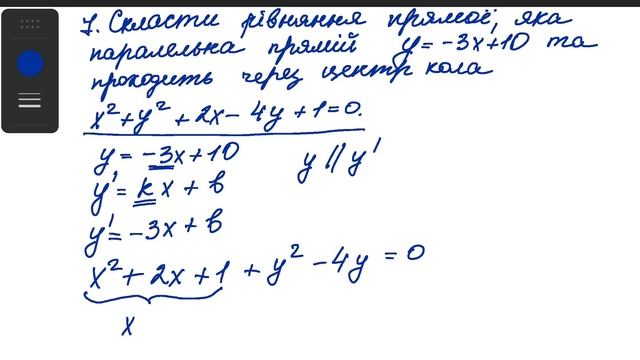 7. Скласти рівняння прямої, яка
паралельна прямій y = -3x+10 та
проходить через центр кола
x² + y² + 2x - 4y + 1 = 0.
y = -3x + 10 y // y'
y' = kx + b
y' = -3x + b
x² + 2x + 1 + y² - 4y = 0
x